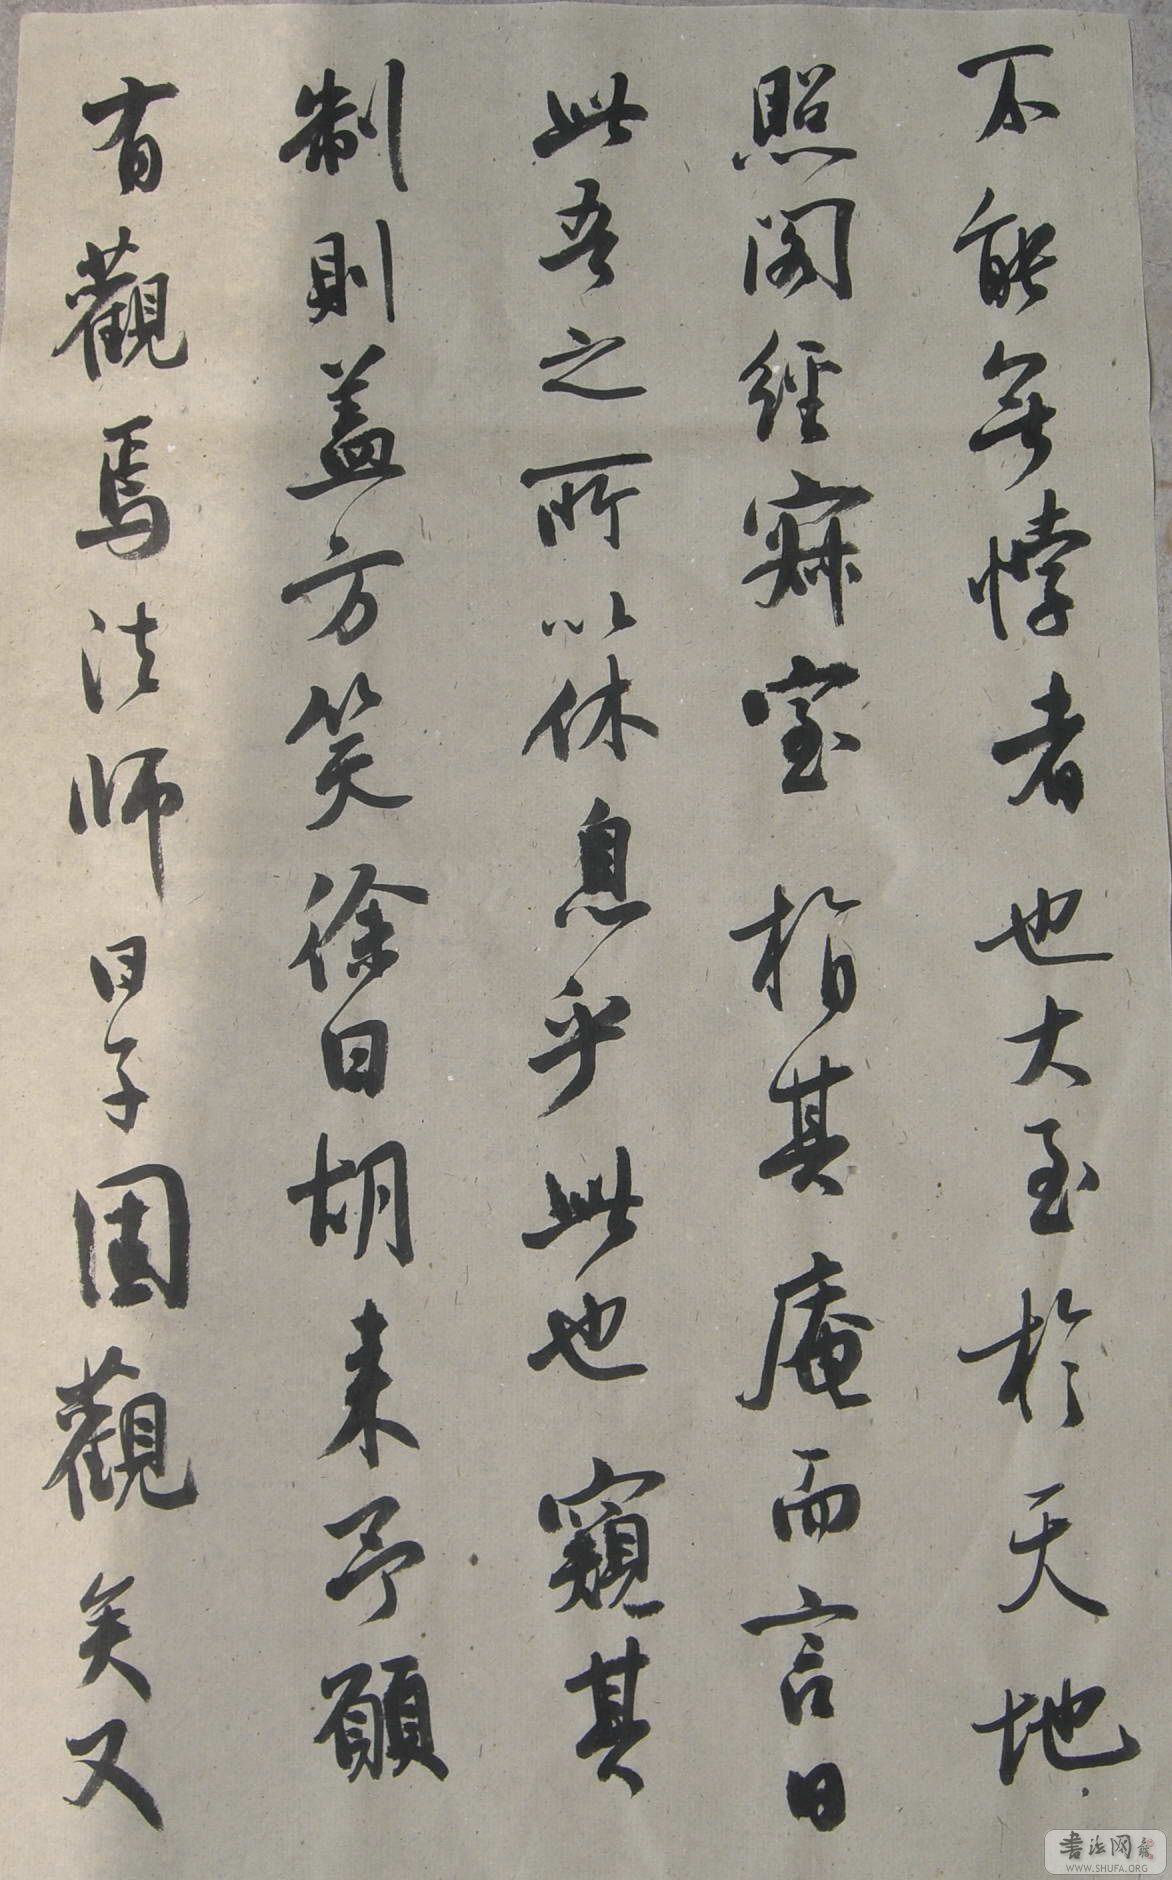 不能無悖者也大至於天地
照閣經寐室指其庵而言曰
此吾之所以休息乎此也窺其
制則蓋方笑徐曰胡来予願
有觀焉法師曰子固觀矣又
書法网
WWW.SHUFA.ORG